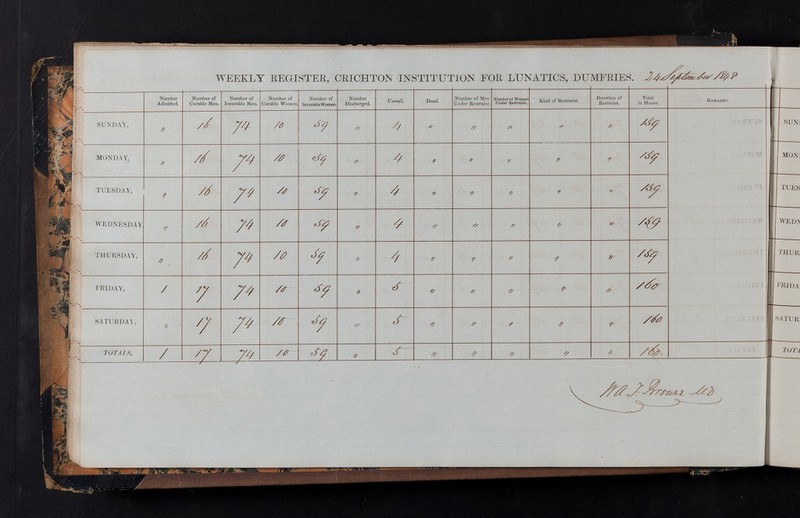 WEEKLY REGISTER, CRICHTON INSTITUTION FOR LUNATICS, DUMFRIES. 24 September 1848
Number Admitted. Number of Curable Men. Number of Incurable Men. Number of Curable Women. Number of Incurable Women. Number Discharged. Unwell. Dead. Number of Men Under Restraint. Number of Women Under Restraint. Kind of Restraint. Duration of Restraint. Total in House. Remarks.
SUNDAY, " 16 74 10 59 " 4 " " " " " 159
MONDAY, " 16 74 10 59 " 4 " " " " " 159
TUESDAY, " 16 74 10 59 " 4 " " " " " 159
WEDNESDAY " 16 74 10 59 " 4 " " " " " 159
THURSDAY, " 16 74 10 59 " 4 " " " " " 159
FRIDAY, 1 17 74 10 59 " 5 " " " " " 160
SATURDAY, " 17 74 10 59 " 5 " " " " " 160
TOTALS, 1 17 74 10 59 " 5 " " " " " 160.
W.A.F. Browne MD
SUN
MON
TUES
WEDN
THUR
FRIDA
SATUR
TOTA